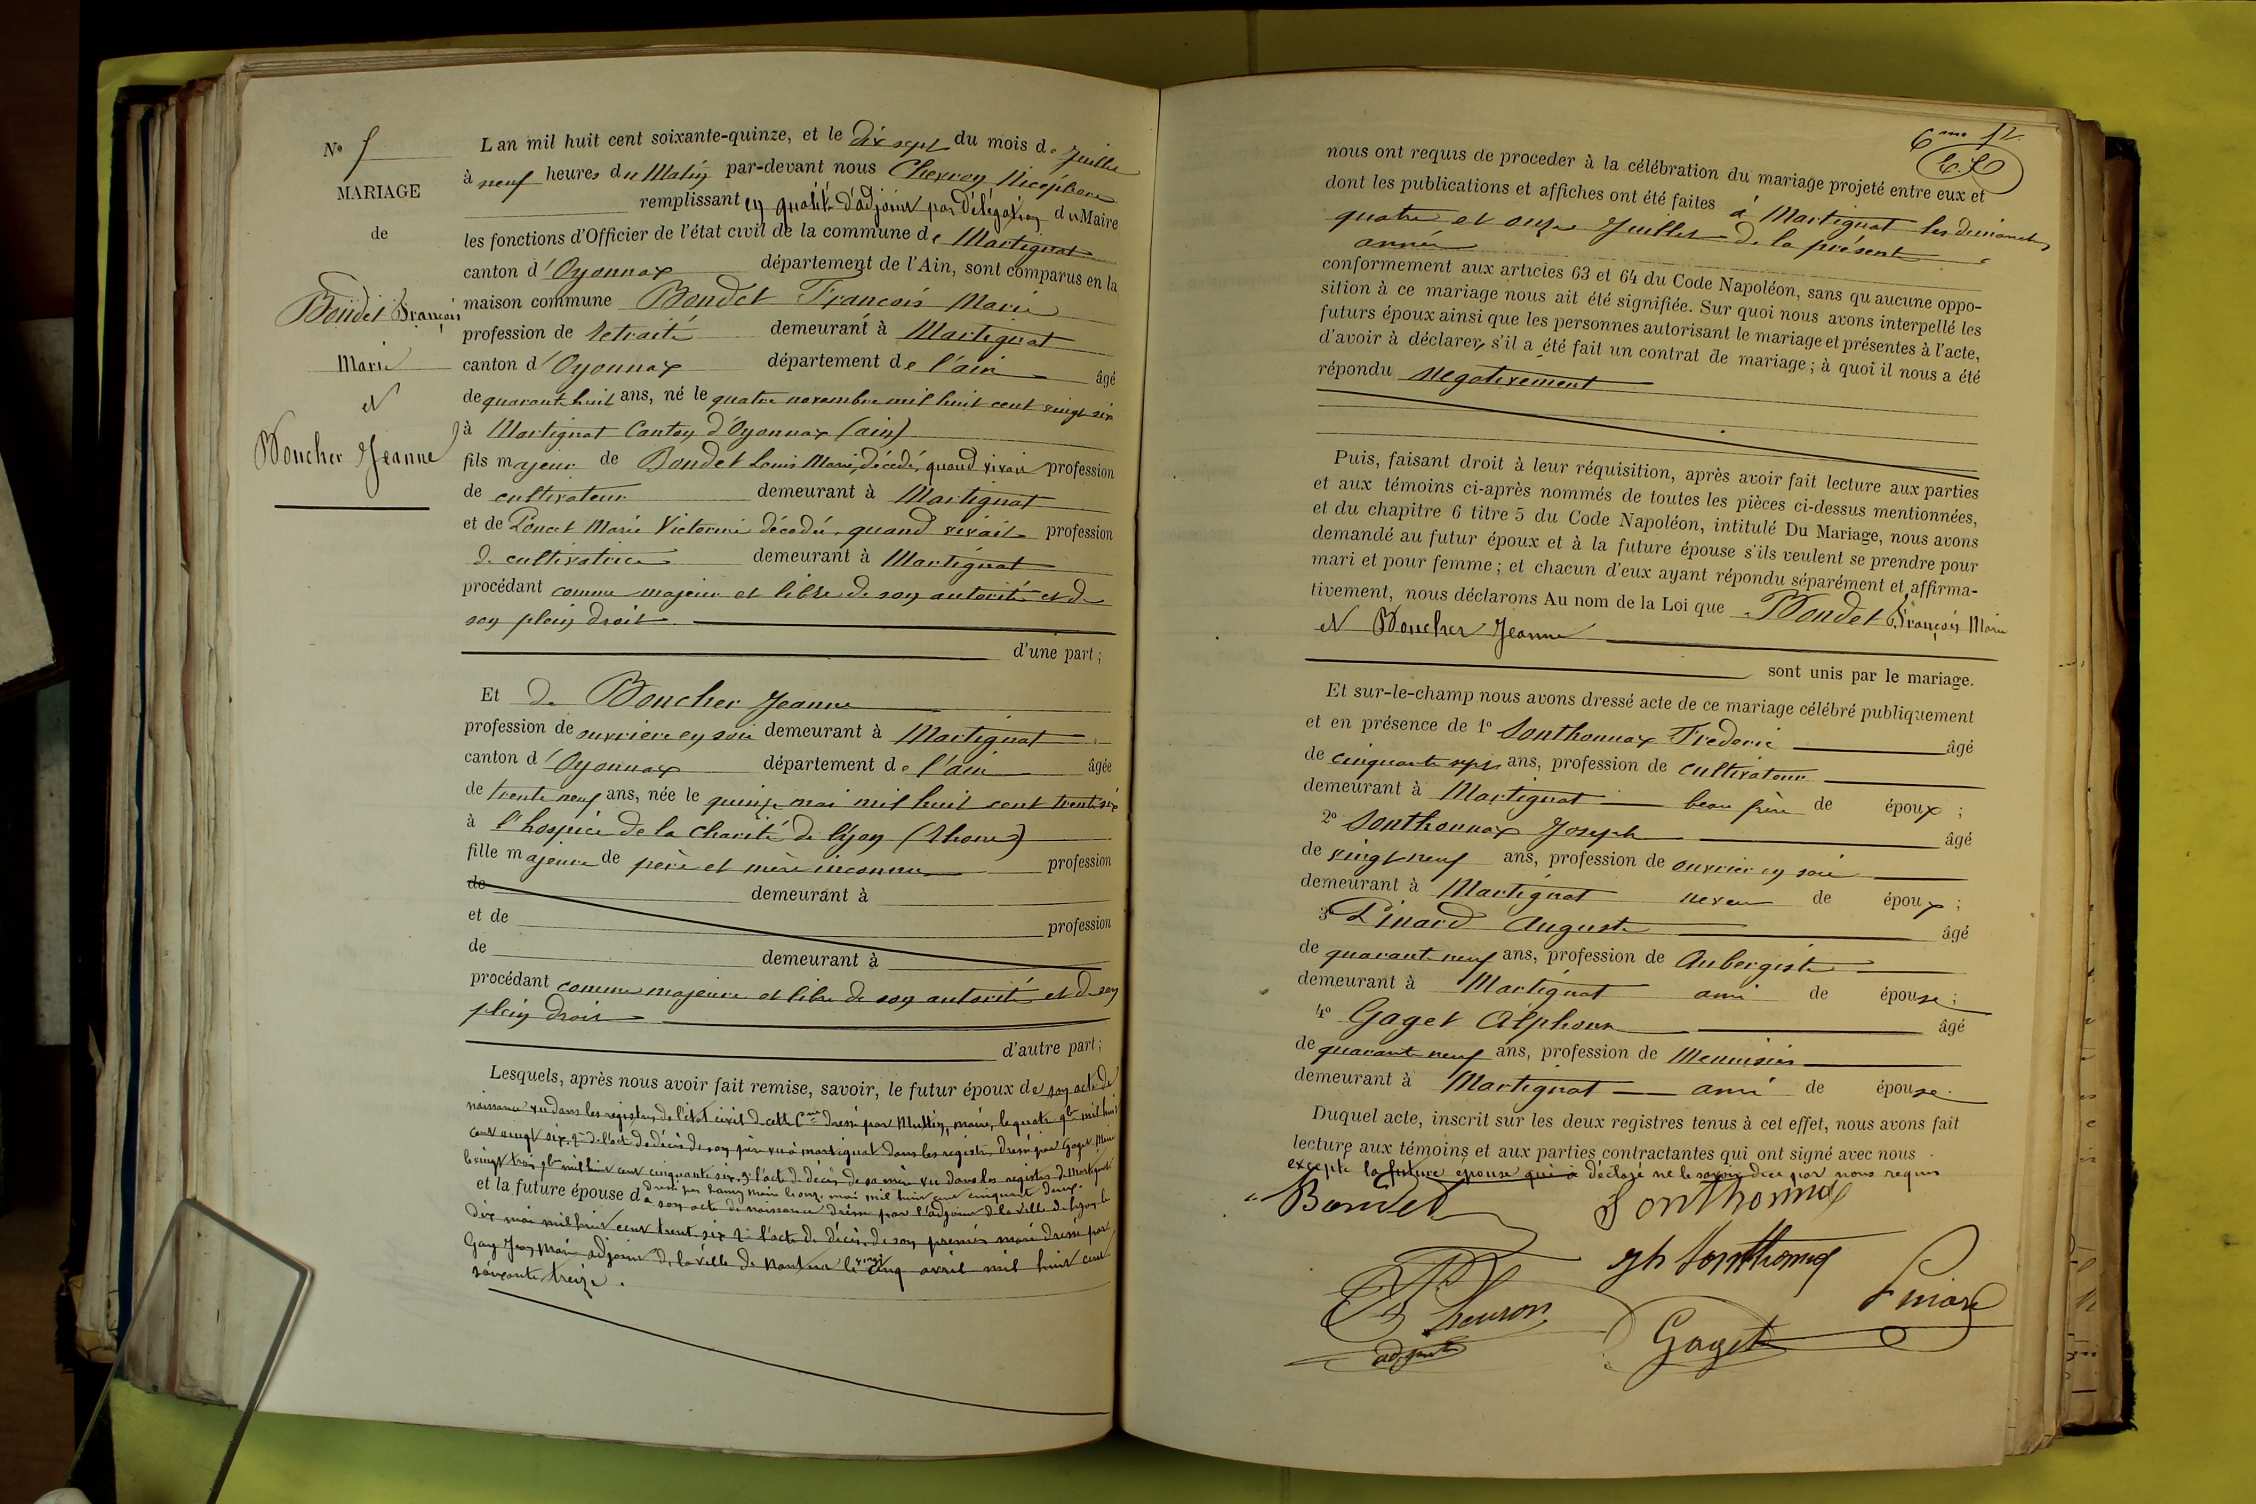 Nº 5
MARIAGE
de
Bondet François
Marie
et
Boucher Jeanne
L an mil huit cent soixante-quinze, et le dix sept du mois de Juillet
à neuf heures du Matin par-devant nous Chevron Nicéphore
remplissant en qualité d'adjoint par Délégation du Maire
les fonctions d'Officier de l'état civil de la commune de Martignat
canton d'Oyonnax département de l'Ain, sont comparus en la
maison commune Bondet François Marie
profession de retraité demeurant à Martignat
canton d'Oyonnax département de l'ain âgé
de quarante huit ans, né le quatre novembre mil huit cent vingt six
à Martignat Canton d'Oyonnax (ain)
fils majeur de Bondet Louis Marie, décédé, quand vivait profession
de cultivateur demeurant à Martignat
et de Poncet Marie Victorine décédée, quand vivait profession
de cultivatrice demeurant à Martignat
procédant comme majeur et libre de son autorité et de
son plein droit
d'une part ;
Et de Boucher Jeanne
profession de ouvrière en soie demeurant à Martignat
canton d'Oyonnax département de l'ain âgée
de trente neuf ans, née le quinze mai mil huit cent trente six
à l'hospice de la Charité de Lyon (Rhone)
fille majeure de père et mère inconnus profession
de demeurant à
et de profession
de demeurant à
procédant comme majeure et libre de son autorité et de son
plein droit
d'autre part ;
Lesquels, après nous avoir fait remise, savoir, le futur époux de son acte de
naissance vu dans les registres de l'état civil de cette Cne dressé par Muttin, maire, le quatre 9bre mil huit
cent vingt six, 2º de l'acte de décès de son père vu à martignat dans les registres dressé par Gaget Maire
le vingt trois 9bre mil huit cent cinquante six, 3º l'acte de décès de sa mère vu dans les registres de Martignat
dressé par maire le onze mai mil huit cent cinquante deux
et la future épouse de son acte de naissance dressé par l'adjoint de la ville de Lyon le
dix mai mil huit cent trente six 2º l'acte de décès de son premier mari dressé par
Guy Jean Marie adjoint de la ville de Nantua le vingt cinq avril mil huit cent
soixante treize.
6me 12
nous ont requis de proceder à la célébration du mariage projeté entre eux et
dont les publications et affiches ont été faites à Martignat les dimanches
quatre et onze Juillet de la présente
année
conformement aux articies 63 et 64 du Code Napoléon, sans qu aucune oppo-
sition à ce mariage nous ait été signifiée. Sur quoi nous avons interpellé les
futurs époux ainsi que les personnes autorisant le mariage et présentes à l'acte,
d'avoir à déclarer, s'il a été fait un contrat de mariage ; à quoi il nous a été
répondu negativement
Puis, faisant droit à leur réquisition, après avoir fait lecture aux parties
et aux témoins ci-après nommés de toutes les pièces ci-dessus mentionnées,
et du chapitre 6 titre 5 du Code Napoléon, intitulé Du Mariage, nous avons
demandé au futur époux et à la future épouse s'ils veulent se prendre pour
mari et pour femme ; et chacun d'eux ayant répondu séparément et affirma-
tivement, nous déclarons Au nom de la Loi que Bondet François Marie
et Boucher Jeanne
sont unis par le mariage.
Et sur-le-champ nous avons dressé acte de ce mariage célébré publiquement
et en présence de 1º Sonthonnax Frederic âgé
de cinquante sept ans, profession de cultivateur
demeurant à Martignat beau frère de époux ;
2º Sonthonnax Joseph âgé
de vingt neuf ans, profession de ouvrier en soie
demeurant à Martignat neveu de époux ;
3º Pinard Auguste âgé
de quarante neuf ans, profession de Aubergiste
demeurant à Martignat ami de épouse ;
4º Gaget Alphonse âgé
de quarante neuf ans, profession de Menuisier
demeurant à Martignat ami de épouse.
Duquel acte, inscrit sur les deux registres tenus à cet effet, nous avons fait
lecture aux témoins et aux parties contractantes qui ont signé avec nous
excepté la future épouse qui a déclaré ne le savoir de ce par nous requis
Bondet Sonthonnax
jh Sonthonnax
Chevron Pinard
adjoint Gaget